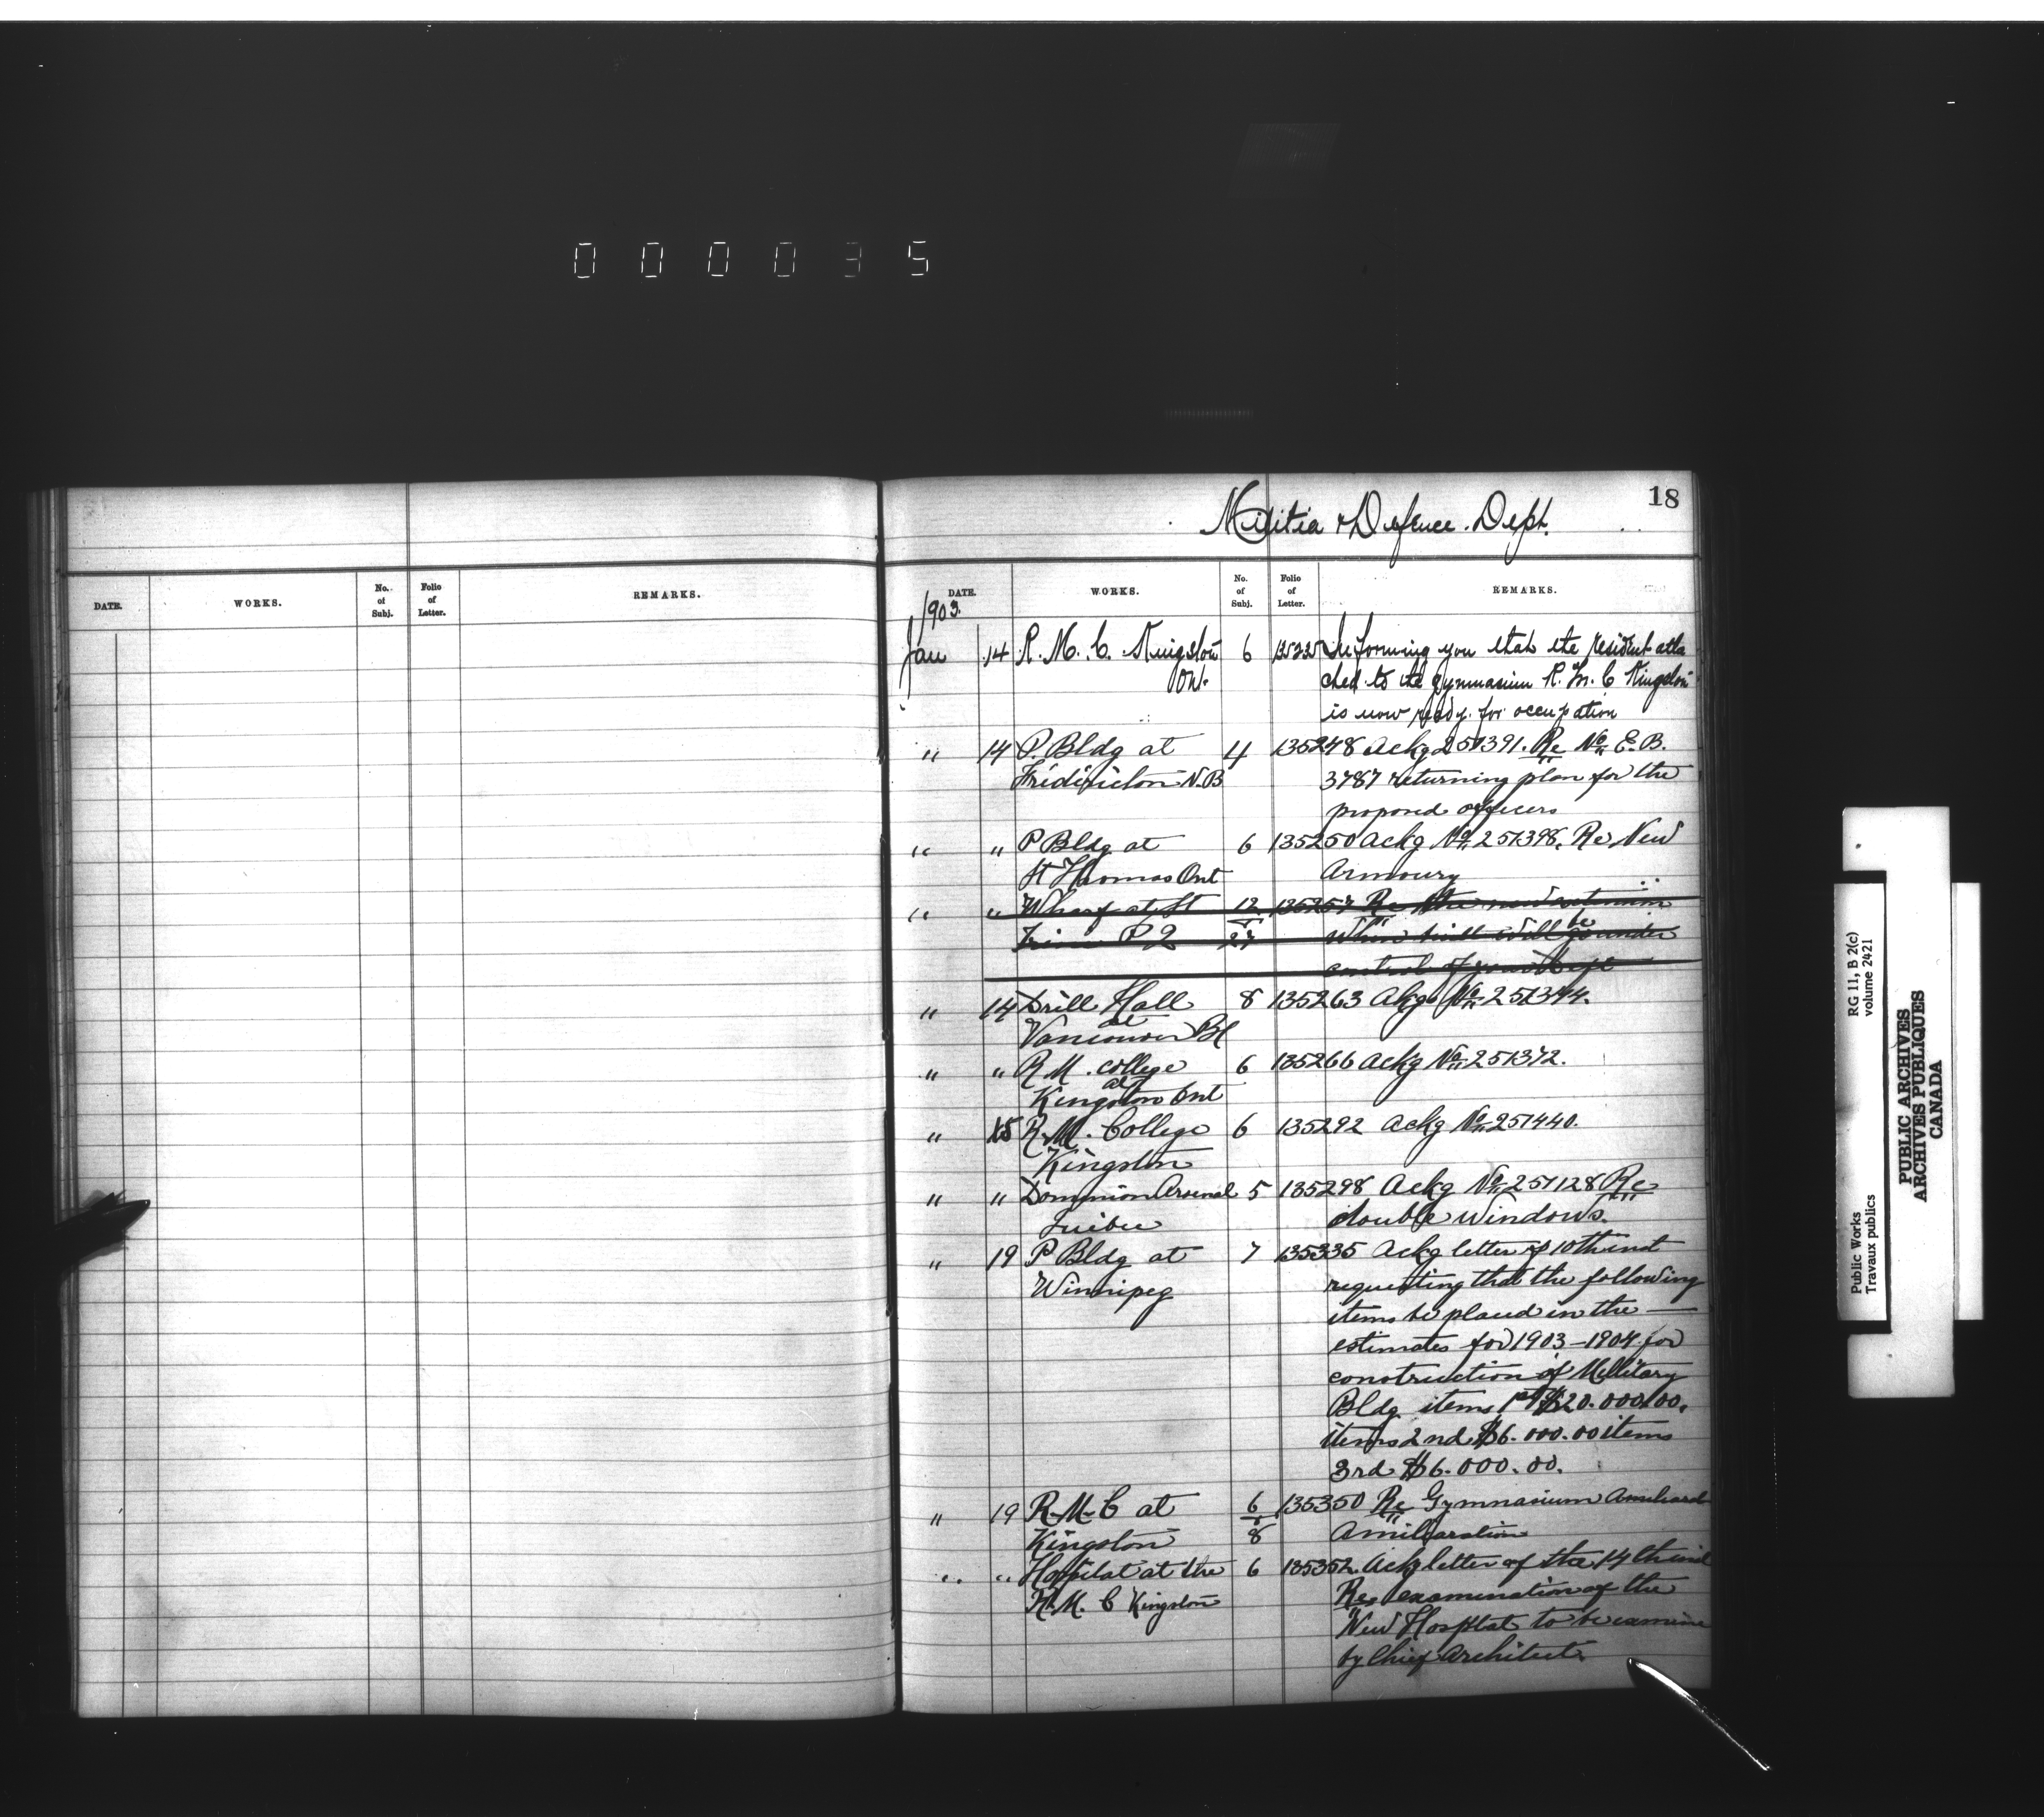 0 0 0 0 3 5
18
Militia & Defence. Dept.
DATE. WORKS. No. of Subj. Folio of Letter. REMARKS.
DATE. WORKS. No. of Subj. Folio of Letter. REMARKS.
1903.
Jan 14 R. M. C. Kingston 6 Informing you that the resident atta
Ont. ched to the gymnasium R. M. C Kingston
is now ready for occupation
" 14 P. Bldg at 4 135248 Ackg 251391. Re No E. B.
Fridericton N.B 3787 returning plan for the
proposed officers
" " P Bldg at 6 135250 Ackg No 251398. Re New
St Thomas Ont Armoury
" " Wharf at St 12 135257 Re the new
P 2 27 will be under
control of your Dept
" 14 Drill Hall 8 135263 Akg No 251344.
at
Vancouver BC
" " R M. College 6 135266 Ackg No 251372.
at
Kingston Ont
" 15 R. M. College 6 135292 Ackg No 251440.
Kingston
" " Dominion Arsenal 5 135298 Ackg No 251128 Re
Quibec double Windows.
" 19 P Bldg at 7 135335 Ackg letter of 10th inst
Winnipeg requesting that the following
items be placed in the —
estimates for 1903 – 1904 for
construction of Millitary
Bldg items 1st $20.000.00.
items 2nd $6.000.00 items
3rd $6.000.00.
" 19 R. M. C at 6 135350 Re Gymnasium
Kingston 8
" " Hospital at the 6 135352. Ackg letter of the 14th inst
R. M. C Kingston Re examination of the
New Hosptal to be examine
by Chief Architect
Public Works RG 11, B 2(c)
Travaux publics volume 2421
PUBLIC ARCHIVES
ARCHIVES PUBLIQUES
CANADA